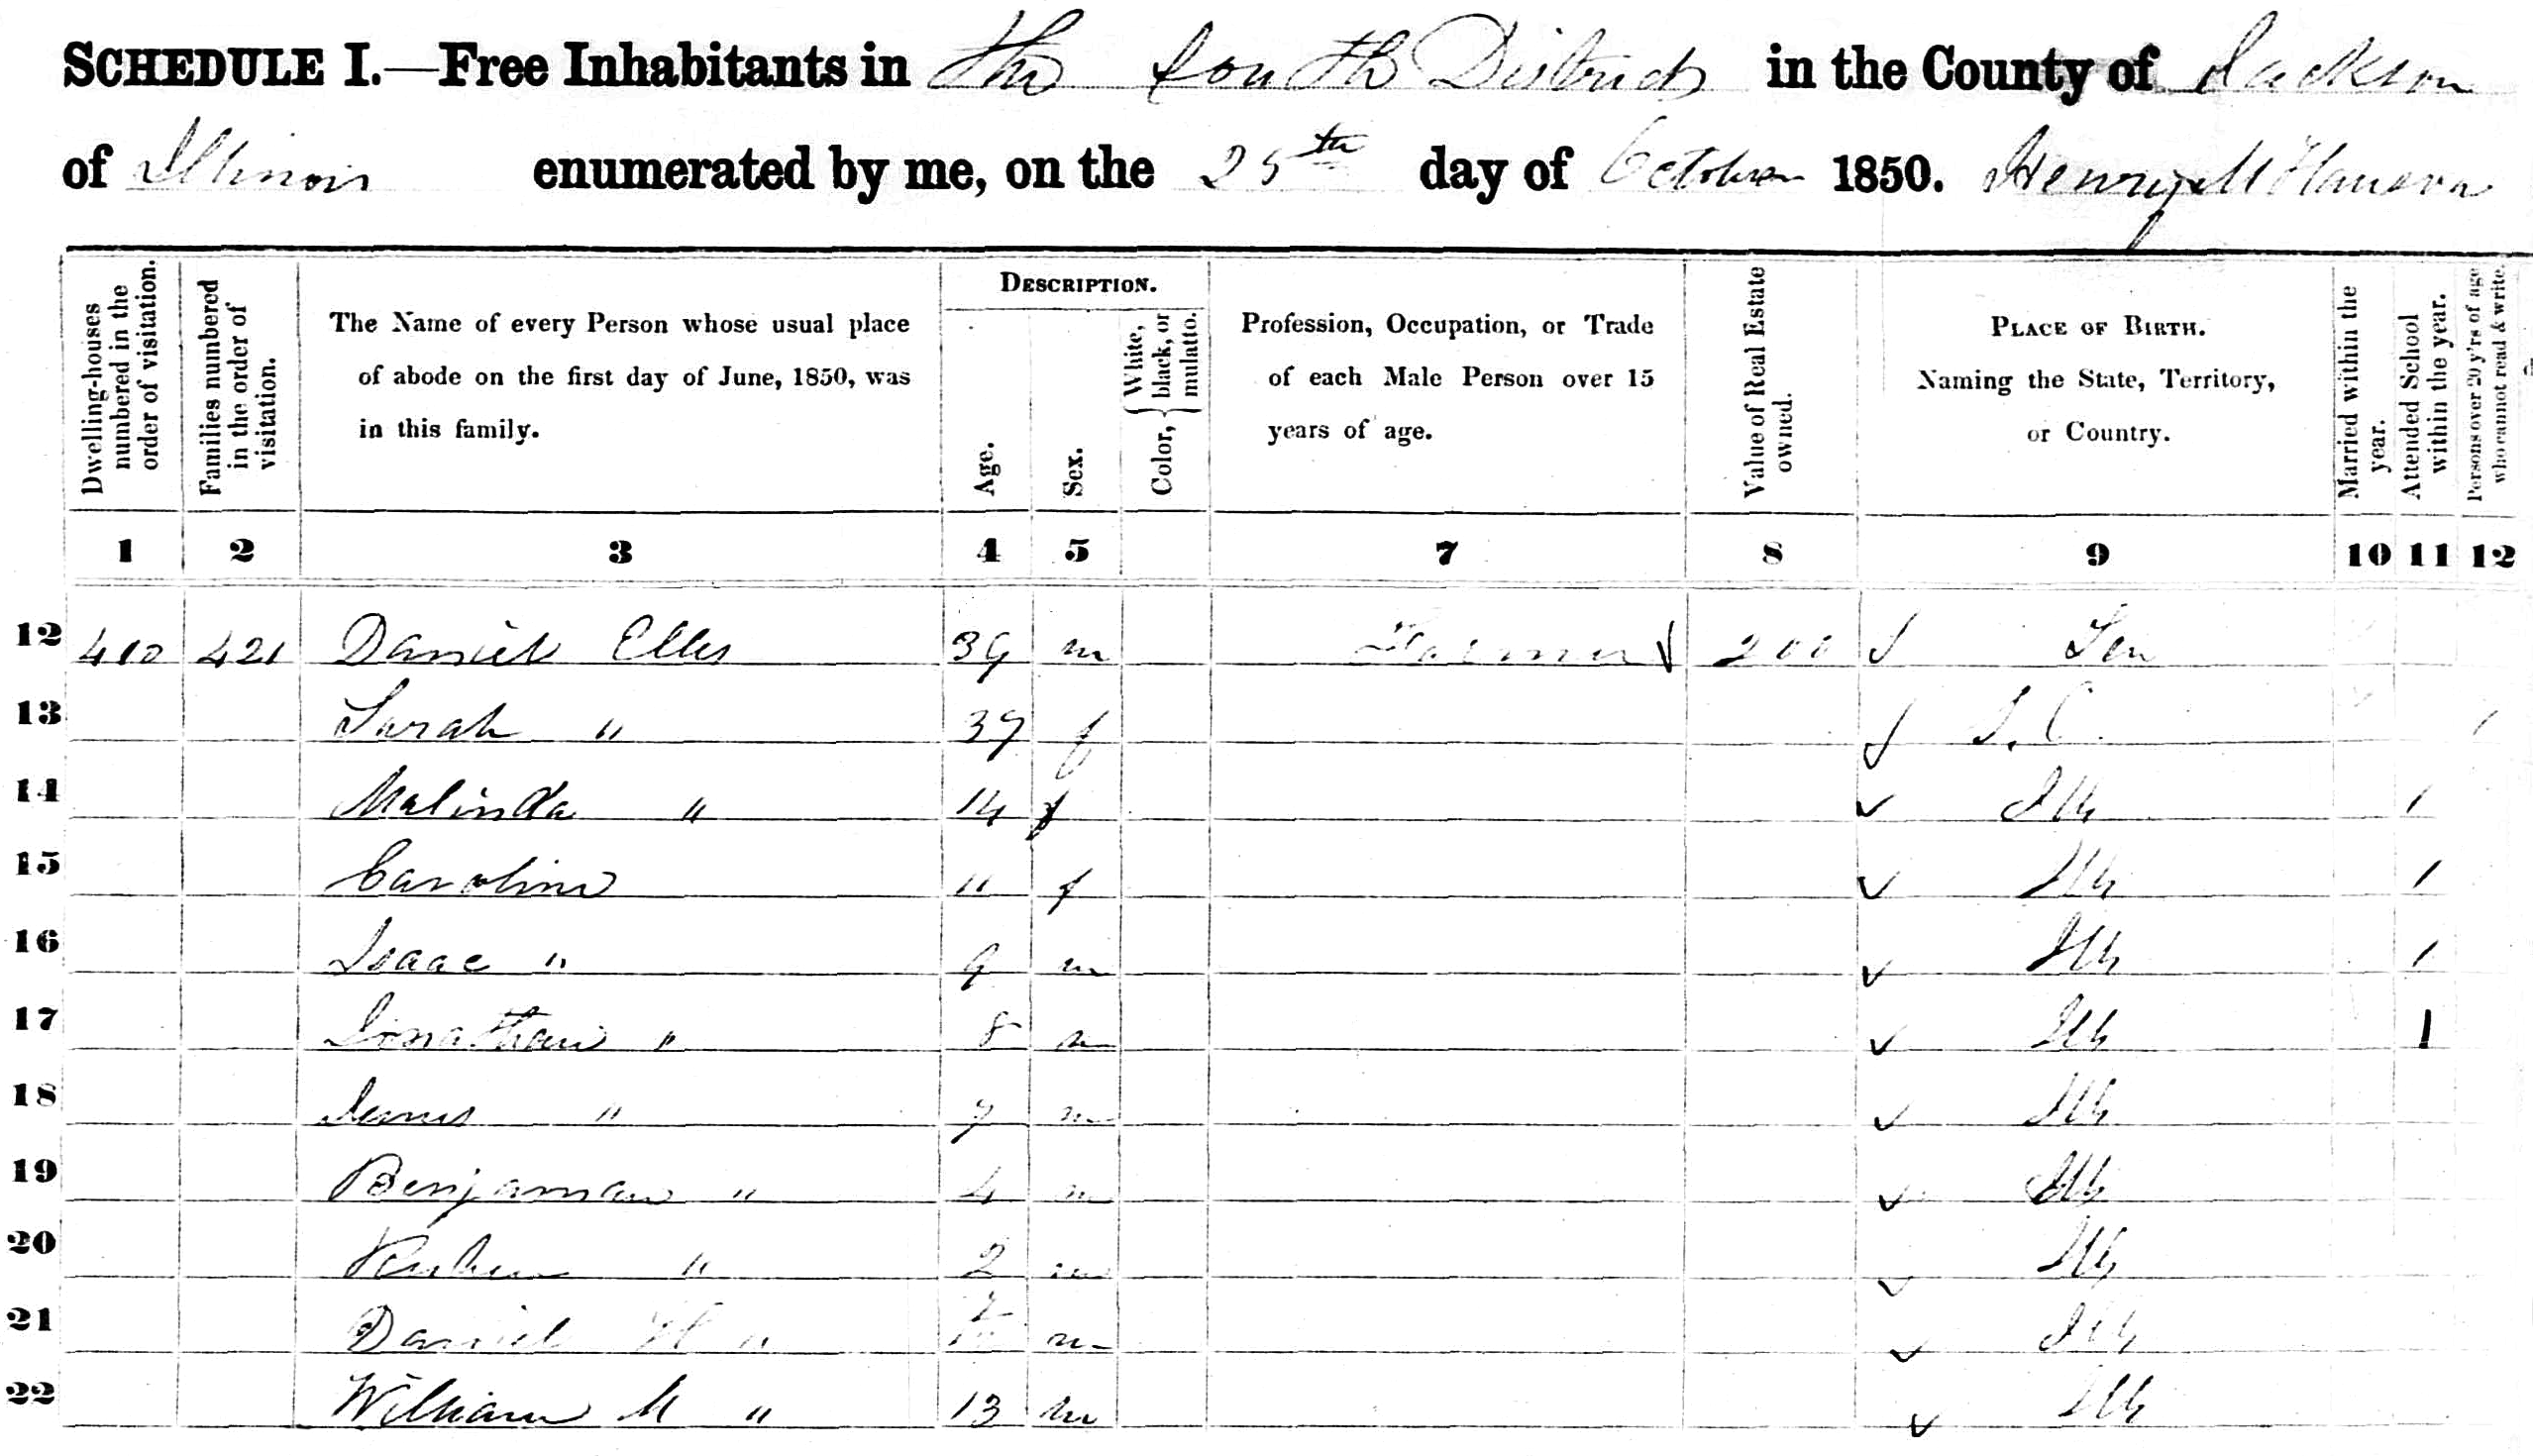 SCHEDULE I.—Free Inhabitants in the fouth District in the County of Jackson
of Illinois enumerated by me, on the 25th day of October 1850. Henry
Dwelling-houses numbered in the order of visitation.
Families numbered in the order of visitation.
The Name of every Person whose usual place
of abode on the first day of June, 1850, was
in this family.
DESCRIPTION.
Age.
Sex.
Color, { White, black, or mulatto.
Profession, Occupation, or Trade
of each Male Person over 15
years of age.
Value of Real Estate owned.
PLACE OF BIRTH.
Naming the State, Territory,
or Country.
Married within the year.
Attended School within the year.
Persons over 20 y'rs of age who cannot read & write.
1 2 3 4 5 7 8 9 10 11 12
12 410 421 Daniel Elles 39 m Farmer 200 Ten
13 Sarah " 39 f S. C. 1
14 Malinda " 14 f Ills 1
15 Caroline 11 f Ills 1
16 Isaac " 9 m Ills 1
17 Jonathan " 8 m Ills 1
18 James " 7 m Ills
19 Benjaman " 4 m Ills
20 Reuben " 2 m Ills
21 Daniel H " m Ills
22 William M " 13 m Ills